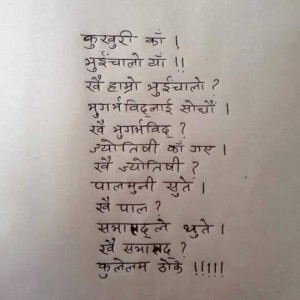 कुखुरी काँ ।
भुईंचालो याँ !!
खै हाम्रो भुईंचालो ?
भुगर्भविद्लाई सोधौं ।
खै भुगर्भविद् ?
ज्योतिषी काँ गए ।
खै ज्योतिषी ?
पालमुनी सुते ।
खै पाल ?
सभासद्ले थुते ।
खै सभासद् ?
कुलेलम ठोके !!!!!